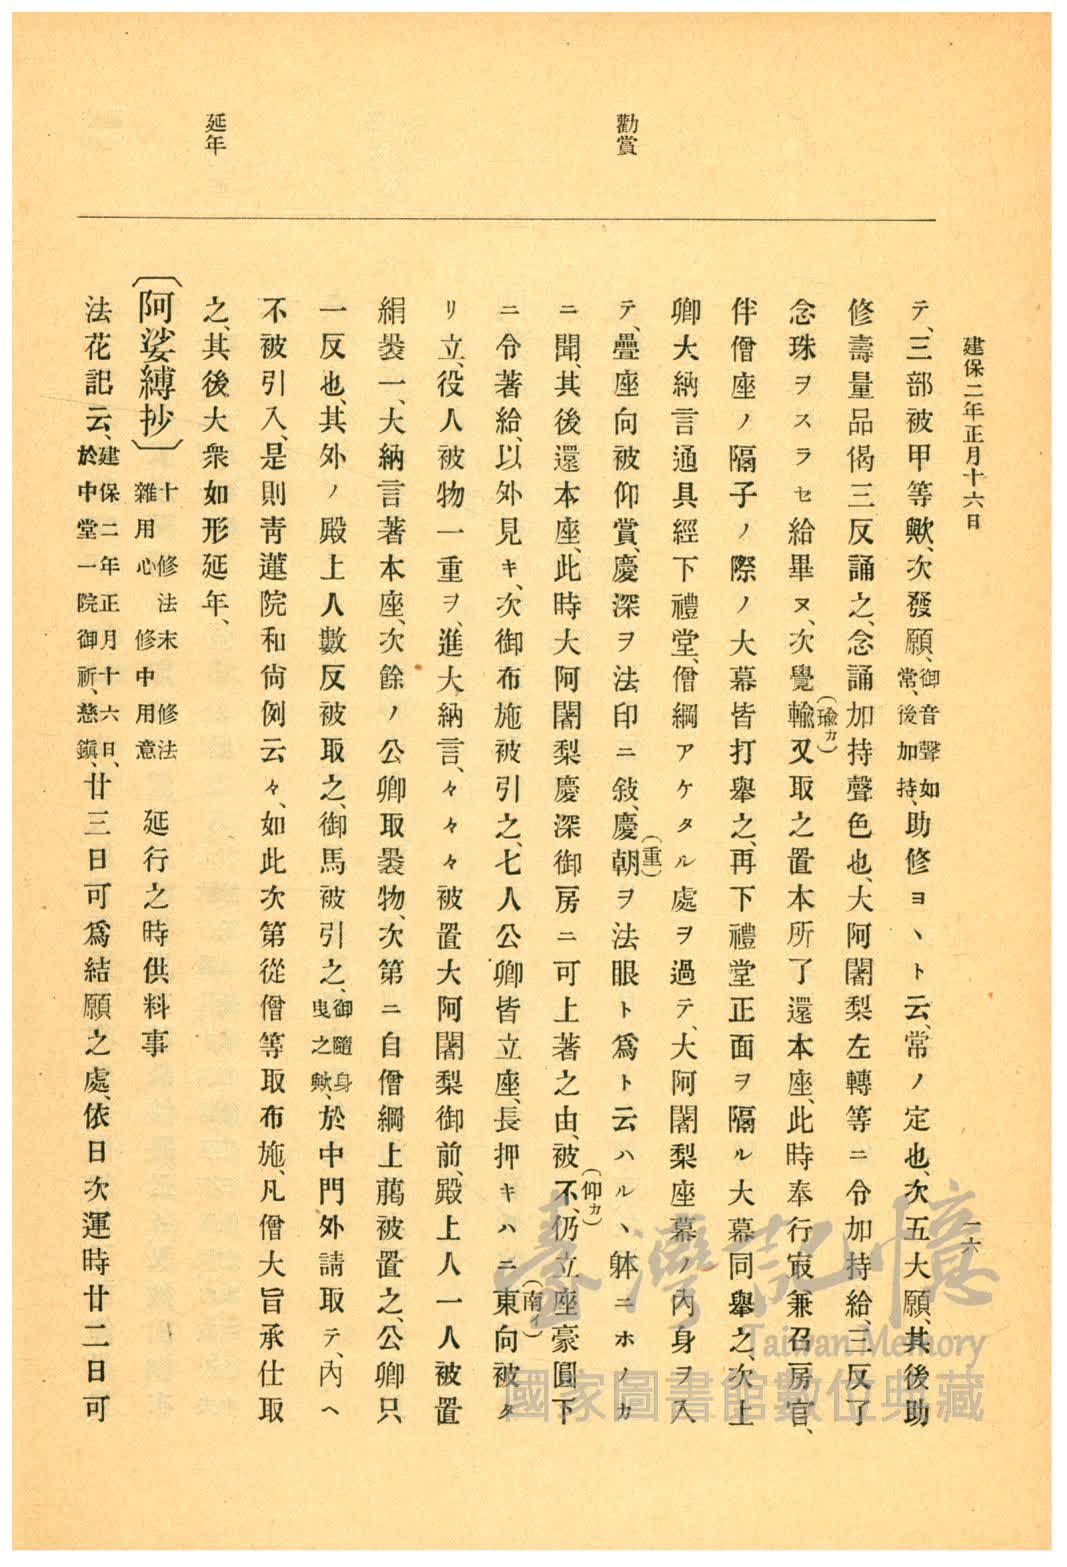 建保二年正月十六日
一六
勸賞
延年
テ、三部被甲等歟、次發願、御音聲如常、後加持、助修ヨヽト云、常ノ定也、次五大願、其後助
修壽量品偈三反誦之、念誦加持聲色也、大阿闍梨左轉等ニ令加持給、三反了
念珠ヲスラセ給畢ヌ、次覺輸(瑜カ)又取之置本所了還本座、此時奉行㝡兼召房官、
伴僧座ノ隔子ノ際ノ大幕皆打擧之、再下禮堂正面ヲ隔ル大幕同擧之、次上
卿大納言通具經下禮堂、僧綱アケタル處ヲ過テ、大阿闍梨座幕ノ內身ヲ入
テ、疊座向被仰賞、慶深ヲ法印ニ敍、慶朝(重)ヲ法眼ト爲ト云ハルヽ躰ニホノカ
ニ聞、其後還本座、此時大阿闍梨慶深御房ニ可上著之由、被不(仰カ)、仍立座豪圓下
ニ令著給、以外見キ、次御布施被引之、七人公卿皆立座、長押キハニ東(南イ)向被タ
リ立、役人被物一重ヲ、進大納言、々々々被置大阿闍梨御前、殿上人一人被置
絹裹一、大納言著本座、次餘ノ公卿取裹物、次第ニ自僧綱上﨟被置之、公卿只
一反也、其外ノ殿上人數反被取之、御馬被引之、御隨身曳之歟、於中門外請取テ、內ヘ
不被引入、是則靑蓮院和尙例云々、如此次第從僧等取布施、凡僧大旨承仕取
之、其後大衆如形延年、
〔阿娑縛抄〕十修法末修法雜用心修中用意 延行之時供料事
法花記云、建保二年正月十六日、於中堂一院御祈、慈鎭、廿三日可爲結願之處、依日次運時廿二日可
臺灣記憶
Taiwan Memory
國家圖書館數位典藏